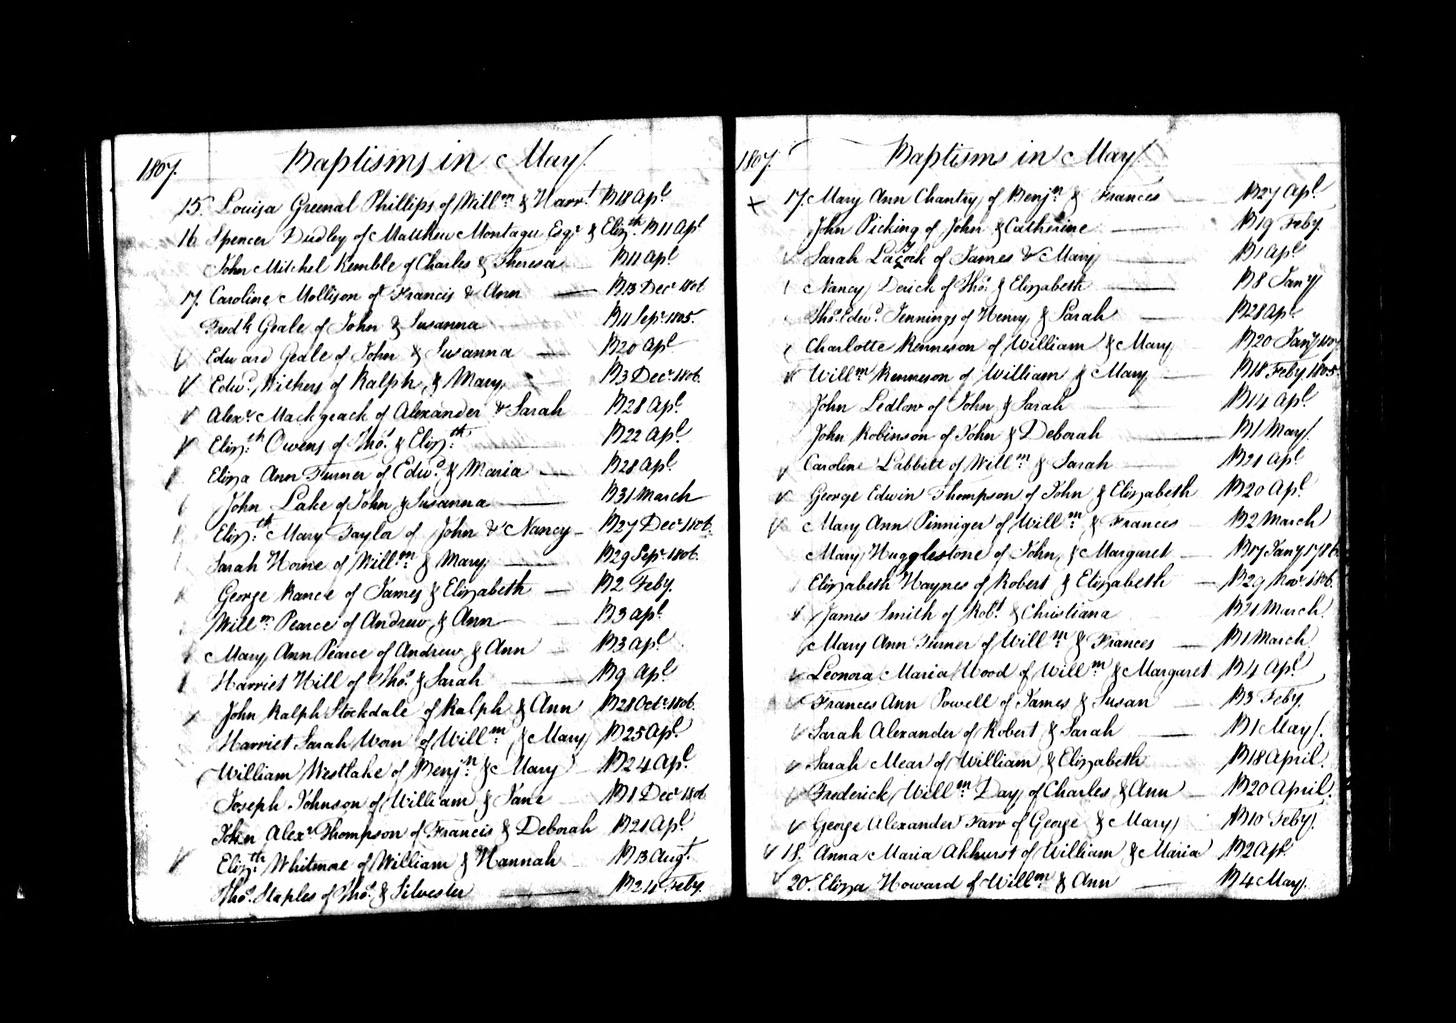 1807. Baptisms in May
15. Louisa Greenal Phillips of Willm & Harrt. B18 Apl.
16 Spencer Dudley of Matthew Montagu Esqr. & Elizth. B11 Apl
John Mitchel Kemble of Charles & Theresa B11 Apl.
17. Caroline Mollison of Francis & Ann B13 Decr. 1806
Fredk Geale of John & Susanna B11 Sepr. 1805.
Edward Geale of John & Susanna B20 Apl.
Edwd. Withers of Ralph & Mary B3 Decr. 1806.
Alexr. Mackgeach of Alexander & Sarah B28 Apl.
Elizth Owens of Thos. & Elizth. B22 Apl.
Eliza Ann Turner of Edwd. & Maria B28 Apl.
John Lake of John & Susanna B31 March
Elizth. Mary Taylor of John & Nancy B27 Decr. 1806.
Sarah Horne of Willm & Mary B29 Sepr. 1806.
George Rance of James & Elizabeth B2 Feby.
Willm Pearce of Andrew & Ann B3 Apl.
Mary Ann Pearce of Andrew & Ann B3 Apl.
Harriet Hill of Thos. & Sarah B9 Apl
John Ralph Stockdale of Ralph & Ann B28 Octr. 1806.
Harriet Sarah Worn of Willm & Mary B25 Apl.
William Westlake of Benjn & Mary B24 Apl.
Joseph Johnson of William & Jane B1 Decr. 1806
John Alexr. Thompson of Francis & Deborah B21 Apl.
Elizth Whitmae of William & Hannah B13 Augt.
Thos. Staples of Thos. & Silvester B24 Feby.
1807. Baptisms in May
17. Mary Ann Chantry of Benjn & Frances B27 Apl.
John Picking of John & Catherine B19 Feby.
Sarah of James & Mary B1 Apl.
Nancy Derich of Thos. & Elizabeth B8 Jany
Thos. Edwd. Jennings of Henry & Sarah B28 Apl
Charlotte Kenneson of William & Mary B20 Jany 1807
Willm Kenneson of William & Mary B18 Feby 1805.
John Ledlow of John & Sarah B14 Apl.
John Robinson of John & Deborah B1 May
Caroline Labbett of Willm & Sarah B21 Apl.
George Edwin Thompson of John & Elizabeth B20 Apl.
Mary Ann Pinniger of Willm & Frances B2 March
Mary Hugglestone of John & Margaret B17 Jany 1786
Elizabeth Haynes of Robert & Elizabeth B29 Novr. 1806.
James Smith of Robt & Christiana B21 March
Mary Ann Turner of Willm & Frances B1 March
Leonora Maria Wood of Willm & Margaret B4 Apl.
Frances Ann Powell of James & Susan B3 Feby.
Sarah Alexander of Robert & Sarah B1 May
Sarah Mear of William & Elizabeth B18 April.
Frederick Willm Day of Charles & Ann B20 April.
George Alexander Farr of George & Mary B10 Feby.
18. Anna Maria Akhurst of William & Maria B2 Apl.
20. Eliza Howard of Willm & Ann B4 May.